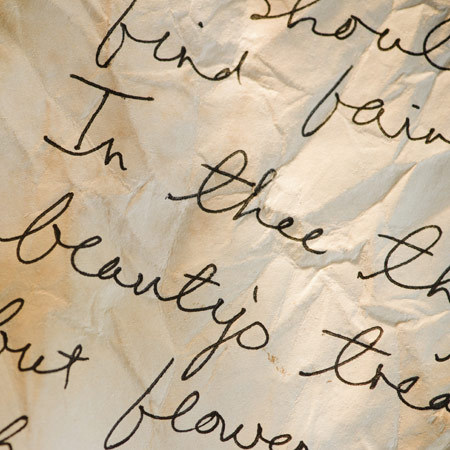 shoul
find fain
In thee th
beauty's trea
but flower